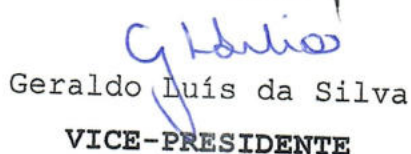 Geraldo Luís da Silva
VICE-PRESIDENTE